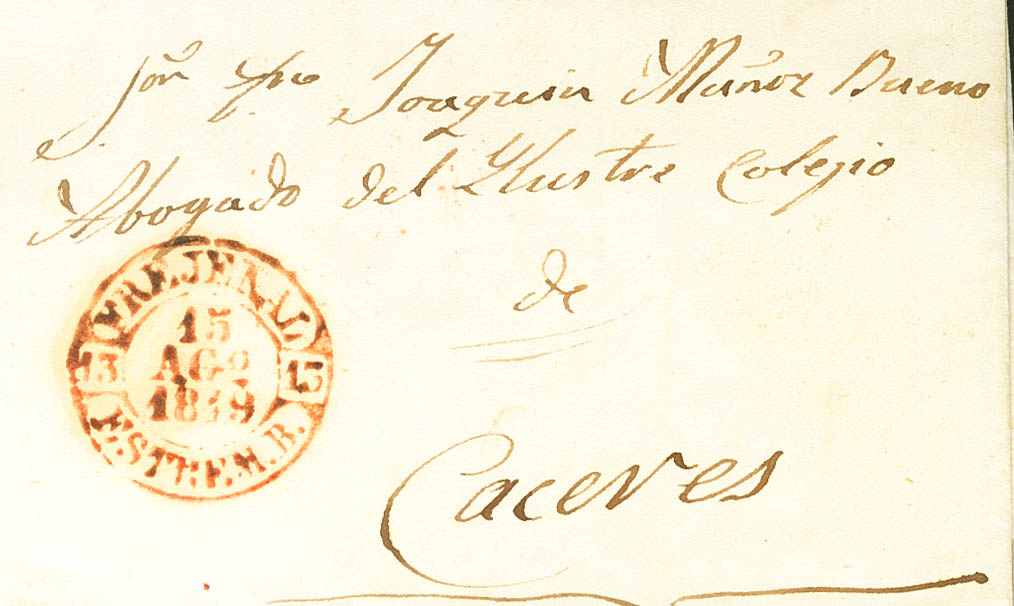 Joaquin Muñoz Bueno
Abogado del Yllustre Colejio
de
Caceres
FREJENAL
15
AGº
1849
15
15
ESTREM.B.